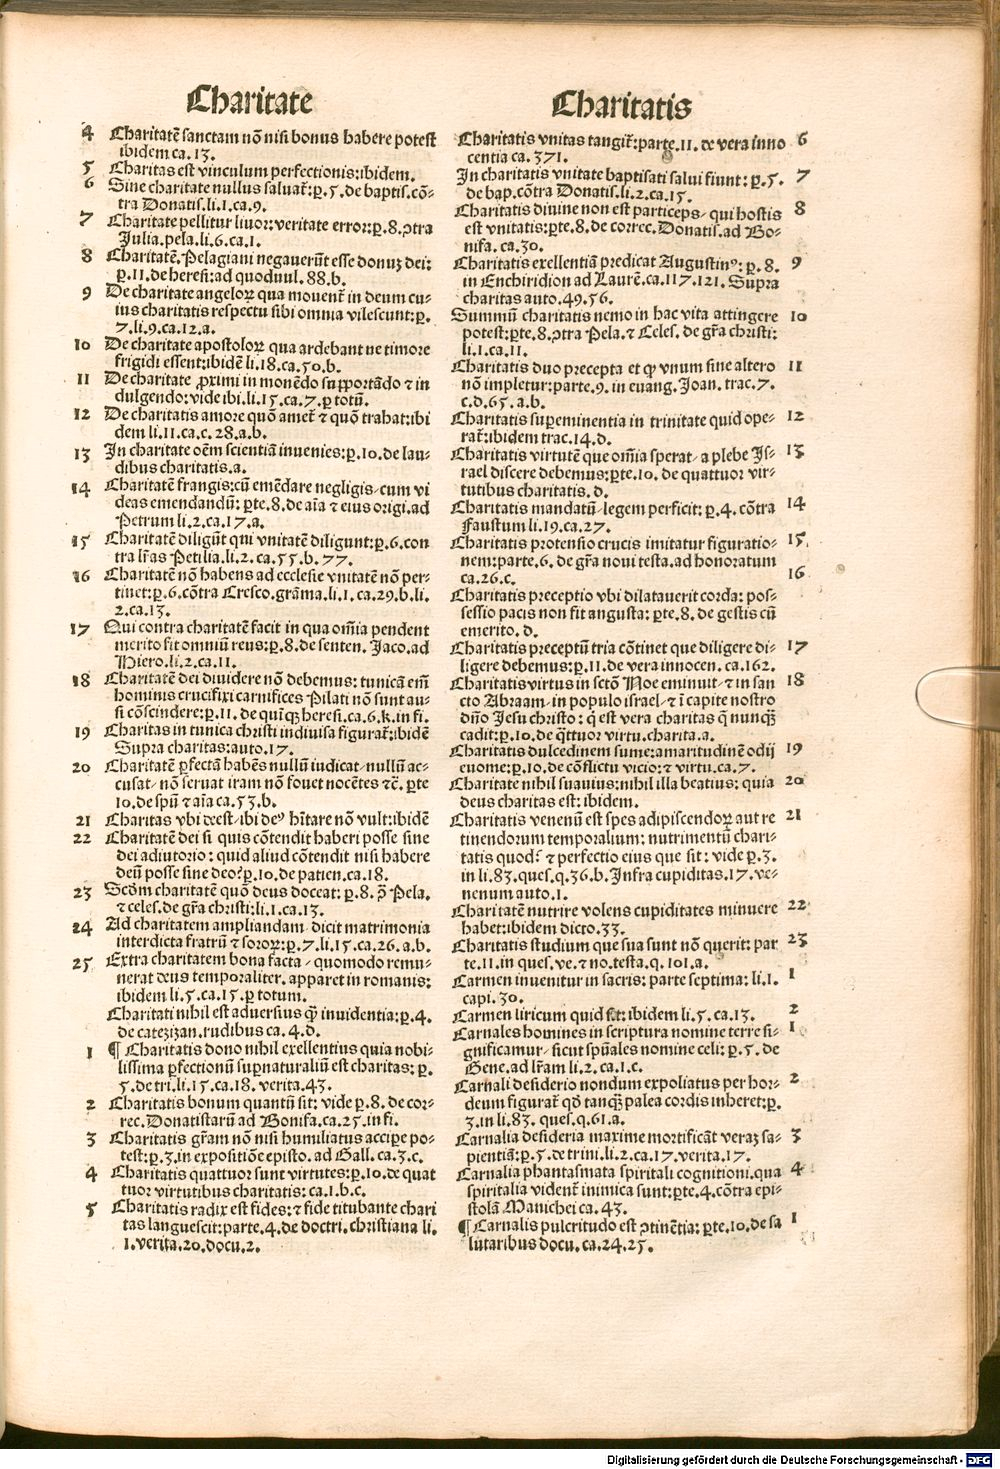 Charitate
4 Charitatē sanctam nō nisi bonus habere potest
ibidem ca. 13.
5 Charitas est vinculum perfectionis: ibidem.
6 Sine charitate nullus saluat᷑: p. 5. de baptis. cō-
tra Donatis. li. 1. ca. 9.
7 Charitate pellitur liuor: veritate error: p. 8. ꝯtra
Julia. pela. li. 6. ca. 1.
8 Charitatē. Pelagiani negauerūt esse donuꝫ dei:
p. 11. de heresi: ad quoduul. 88. b.
9 De charitate angeloꝝ qua mouent᷑ in deum cu-
ius charitatis respectu sibi omnia vilescunt: p.
7. li. 9. ca. 12. a.
10 De charitate apostoloꝝ qua ardebant ne timore
frigidi essent: ibidē li. 18. ca. 50. b.
11 De charitate ꝓximi in monēdo supportādo ⁊ in
dulgendo: vide ibi. li. 15. ca. 7. p totū.
12 De charitatis amore quō amet᷑ ⁊ quō trahat: ibi
dem li. 11. ca. c. 28. a. b.
13 In charitate oēm scientiā inuenies: p. 10. de lau-
dibus charitatis. a.
14 Charitatē frangis: cū emēdare negligis/ cum vi
deas emendandū: ꝑte. 8. de aīa ⁊ eius origi. ad
Petrum li. 2. ca. 17. a.
15 Charitatē diligūt qui vnitatē diligunt: p. 6. con
tra lr̄as Petilia. li. 2. ca. 55. b. 77.
16 Charitatē nō habens ad ecclesie vnitatē nō per-
tinet: p. 6. cōtra Cresco. grāma. li. 1. ca. 29. b. li.
2. ca. 13.
17 Qui contra charitatē facit in qua om̄ia pendent
merito fit omniū reus: p. 8. de senten. Jaco. ad
Hiero. li. 2. ca. 11.
18 Charitatē dei diuidere nō debemus: tunicā em̄
hominis crucifixi carnifices Pilati nō sunt au-
si cōscindere: p. 11. de quīqꝫ heresi. ca. 6. k. in fi.
19 Charitas in tunica christi indiuisa figurat᷑: ibidē
Supra charitas: auto. 17.
20 Charitatē ꝑfectā habēs nullū iudicat/ nullū ac-
cusat/ nō seruat iram nō fouet nocētes ⁊c̄. ꝑte
10. de spū ⁊ aīa ca. 53. b.
21 Charitas vbi deest/ ibi deꝰ hītare nō vult: ibidē
22 Charitatē dei si quis cōtendit haberi posse sine
dei adiutorio: quid aliud cōtendit nisi habere
deū posse sine deo? p. 10. de patien. ca. 18.
23 Scđm charitatē quō deus doceat: p. 8. ꝯ̄ Pela.
⁊ celes. de gr̄a christi: li. 1. ca. 13.
24 Ad charitatem ampliandam dicit matrimonia
interdicta fratrū ⁊ soroꝝ: p. 7. li. 15. ca. 26. a. b.
25 Extra charitatem bona facta/ quomodo remu-
nerat deus temporaliter. apparet in romanis:
ibidem li. 5. ca. 15. p totum.
Charitati nihil est aduersius qͣ̄ inuidentia: p. 4.
de catezizan. rudibus ca. 4. d.
1 ¶ Charitatis dono nihil exellentius quia nobi-
lissima ꝑfectionū supnaturaliū est charitas: p.
5. de tri. li. 15. ca. 18. verita. 43.
2 Charitatis bonum quantū sit: vide p. 8. de cor-
rec. Donatistarū ad Bonifa. ca. 25. in fi.
3 Charitatis gr̄am nō nisi humiliatus accipe po-
test: p. 3. in expositiōe episto. ad Gall. ca. 3. c.
4 Charitatis quattuor sunt virtutes: p. 10. de quat
tuor virtutibus charitatis: ca. 1. b. c.
5 Charitatis radix est fides: ⁊ fide titubante chari
tas languescit: parte. 4. de doctri. christiana li.
1. verita. 20. docu. 2.
Charitatis
Charitatis vnitas tangit᷑: parte. 11. de vera inno 6
centia ca. 371.
In charitatis vnitate baptisati salui fiunt: p. 5. 7
de bap. cōtra Donatis. li. 2. ca. 15.
Charitatis diuine non est particeps/ qui hostis 8
est vnitatis: ꝑte. 8. de correc. Donatis. ad Bo-
nifa. ca. 30.
Charitatis exellentiā predicat Augustinꝰ: p. 8. 9
in Enchiridion ad Laurē. ca. 117. 121. Supra
charitas auto. 49. 56.
Summū charitatis nemo in hac vita attingere 10
potest: ꝑte. 8. ꝯtra Pela. ⁊ Celes. de gr̄a christi:
li. 1. ca. 11.
Charitatis duo precepta et qꝫ vnum sine altero 11
nō impletur: parte. 9. in euang. Joan. trac. 7.
c. d. 65. a. b.
Charitatis supeminentia in trinitate quid ope- 12
rat᷑: ibidem trac. 14. d.
Charitatis virtutē que om̄ia sperat/ a plebe Js- 13
rael discere debemus: ꝑte. 10. de quattuor vir-
tutibus charitatis. d.
Charitatis mandatū/ legem perficit: p. 4. cōtra 14
Faustum li. 19. ca. 27.
Charitatis protensio crucis imitatur figuratio- 15
nem: parte. 6. de gr̄a noui testa. ad honoratum
ca. 26. c. 16
Charitatis preceptio vbi dilatauerit corda: pos-
sessio pacis non fit angusta: ꝑte. 8. de gestis cū
emerito. d.
Charitatis preceptū tria cōtinet que diligere di- 17
ligere debemus: p. 11. de vera innocen. ca. 162.
Charitatis virtus in sctō Noe eminuit/ ⁊ in san 18
cto Abraam/ in populo israel/ ⁊ ī capite nostro
dn̄o Jesu christo: q̄ est vera charitas q̄ nunqͣꝫ
cadit: p. 10. de q̄ttuor virtu. charita. a.
Charitatis dulcedinem sume: amaritudinē odij 19
euome: p. 10. de cōflictu vicio: ⁊ virtu. ca. 7.
Charitate nihil suauius: nihil illa beatius: quia 20
deus charitas est: ibidem.
Charitatis venenū est spes adipiscendoꝝ aut re 21
tinendorum temporalium: nutrimentū chari-
tatis quod᷑ ⁊ perfectio eius que sit: vide p. 3.
in li. 83. ques. q. 36. b. Infra cupiditas. 17. ve-
nenum auto. 1.
Charitatē nutrire volens cupiditates minuere 22
habet: ibidem dicto. 33.
Charitatis studium que sua sunt nō querit: par 23
te. 11. in ques. ve. ⁊ no. testa. q. 101. a.
Carmen inuenitur in sacris: parte septima: li. 1. 1
capi. 30.
Carmen liricum quid sit: ibidem li. 5. ca. 13. 2
Carnales homines in scriptura nomine terre si- 1
gnificamur/ sicut spūales nomine celi: p. 5. de
Gene. ad lr̄am li. 2. ca. 1. c.
Carnali desiderio nondum expoliatus per hor- 2
deum figurat᷑ qđ tanqͣꝫ palea cordis inheret: p.
3. in li. 83. ques. q. 61. a.
Carnalia desideria maxime mortificāt veraꝫ sa- 3
pientiā: p. 5. de trini. li. 2. ca. 17. verita. 17.
Carnalia phantasmata spiritali cognitioni. qua 4
spiritalia vident᷑ inimica sunt: ꝑte. 4. cōtra epi-
stolā Manichei ca. 43.
¶ Carnalis pulcritudo est ꝯtinētia: ꝑte. 10. de sa 1
lutaribus docu. ca. 24. 25.
Digitalisierung gefördert durch die Deutsche Forschungsgemeinschaft - DFG